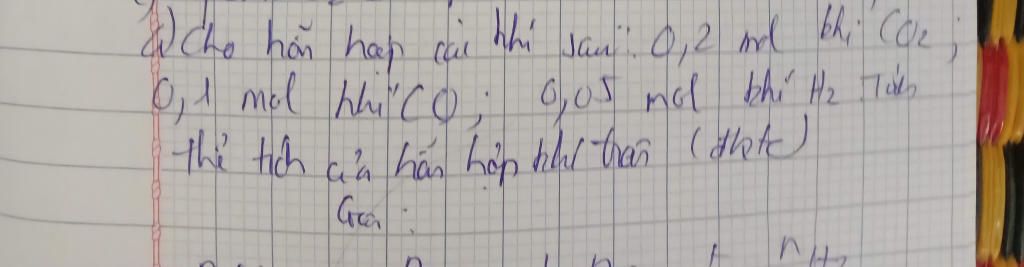 d) Cho hỗn hợp các khí sau: 0,2 mol khí CO2;
0,1 mol khí CO; 0,05 mol khí H2 Tính
thể tích của hỗn hợp khí trên (đktc)
Giải:
n H2